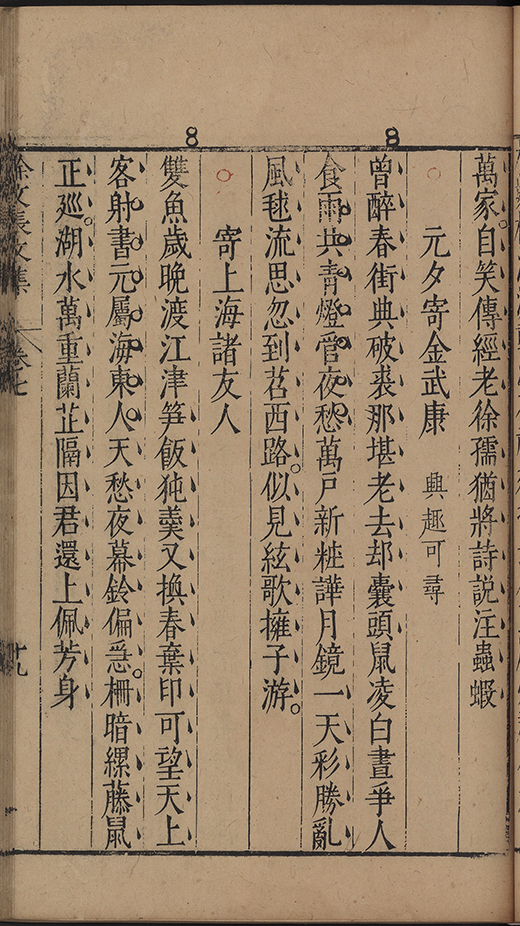 萬家自笑傳經老徐孺猶將詩說注蟲蝦
元夕寄金武康 興趣可尋
曾醉春街典破裘那堪老去却囊頭鼠凌白晝爭人
食雨共青燈管夜愁萬戸新粧譁月鏡一天彩勝亂
風毬流思忽到苕西路似見絃歌擁子游
寄上海諸友人
雙魚歲晚渡江津笋飯㹠羹又換春棄印可望天上
客射書元屬海東人天愁夜幕鈴偏急柵暗縲藤鼠
正𢌞湖水萬重蘭芷隔因君還上佩芳身
徐文長文集 卷七 十九
8
8